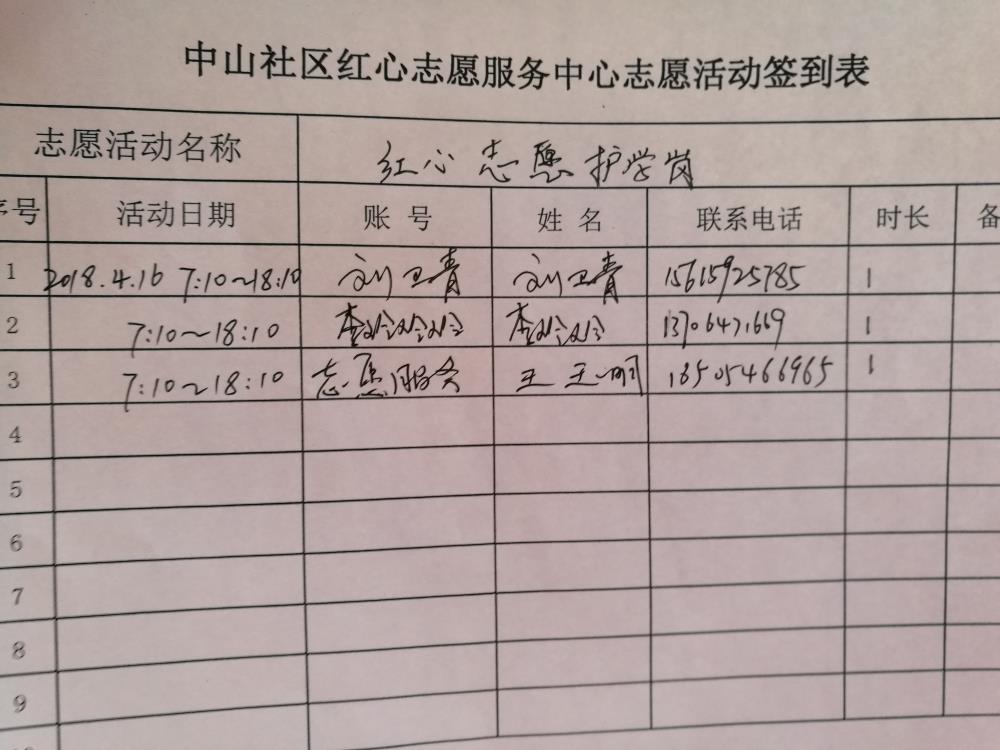 中山社区红心志愿服务中心志愿活动签到表
志愿活动名称 红心志愿护学岗
序号 活动日期 账号 姓名 联系电话 时长 备
1 2018.4.16 7:10~18:10 刘卫青 刘卫青 15615925785 1
2 7:10~18:10 1
3 7:10~18:10 志愿服务 王 1
4
5
6
7
8
9